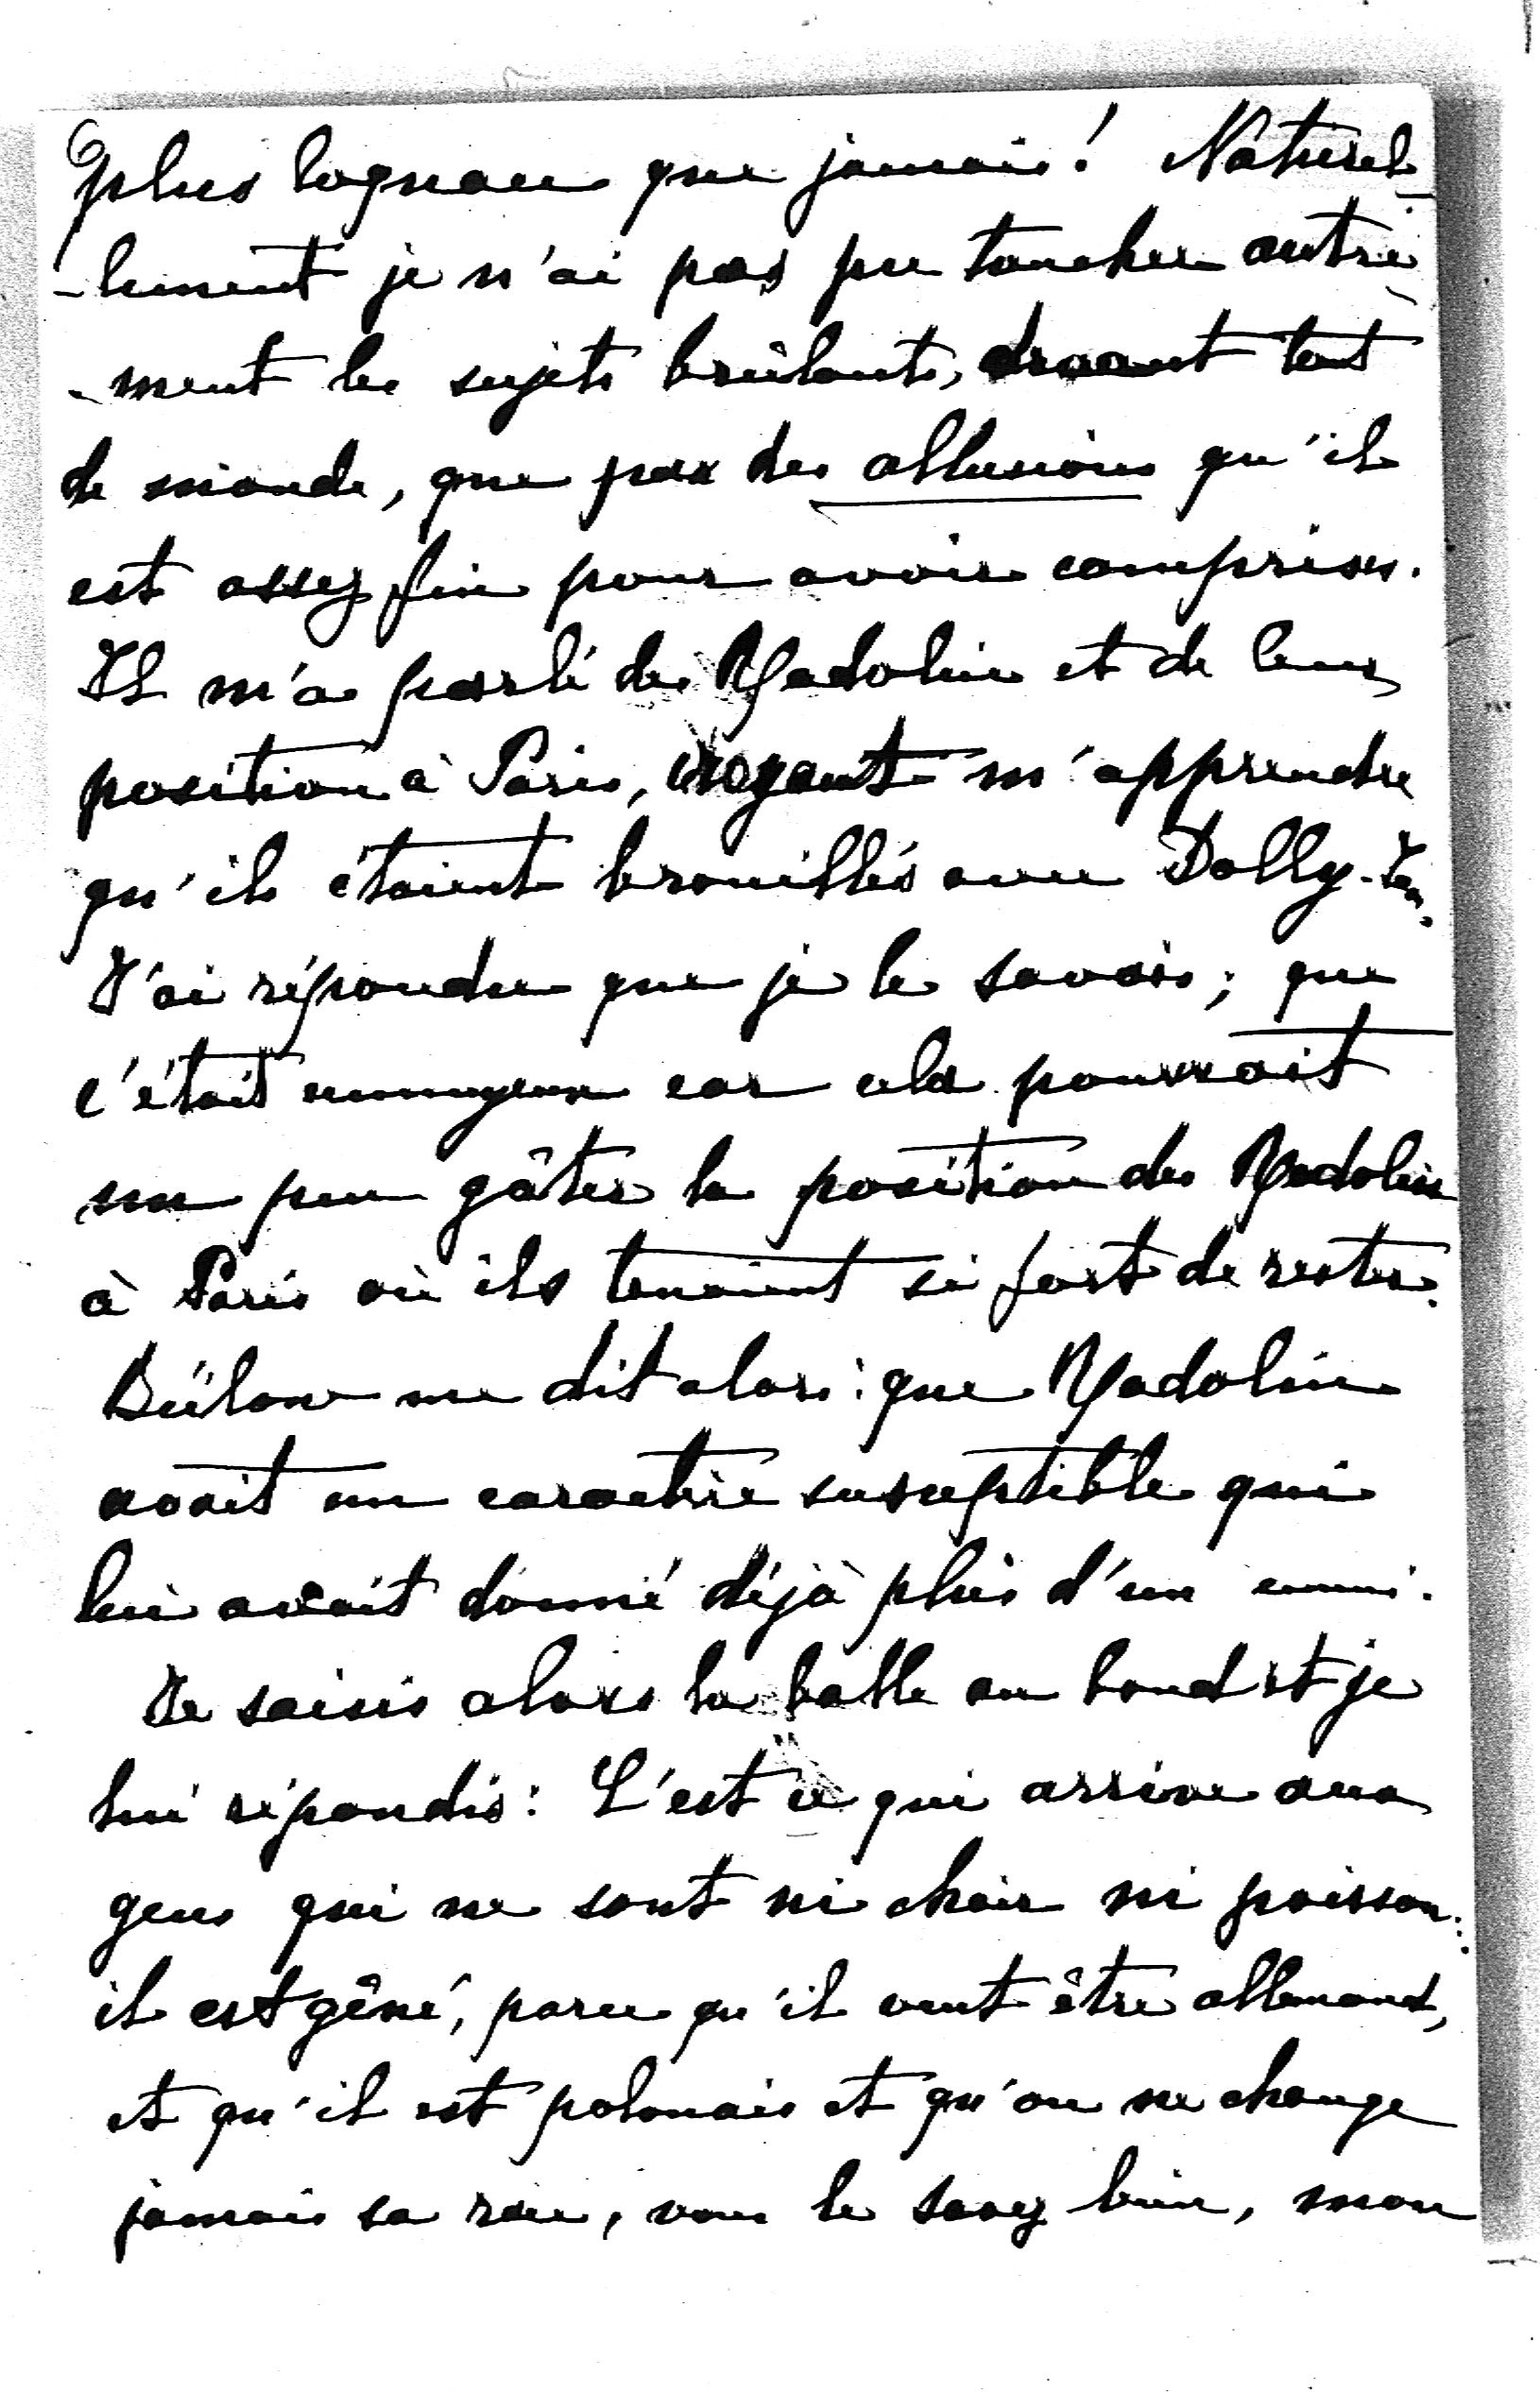 plus loquace que jamais! Naturel-
-lement je n'ai pas pu toucher autre-
-ment les sujets brûlants, devant tant
de monde, que par des allusions qu'il
est assez fin pour avoir comprises.
Il m'a parlé des Radolin et de leur
position à Paris, croyant m'apprendre
qu'ils étaient brouillés avec Dolly.
J'ai répondu que je le savais; que
c'était ennuyeux car cela pourrait
un peu gâter la position des Radolin
à Paris où ils tenaient si fort de rester.
Bülow me dit alors: que Radolin
avait un caractère susceptible qui
lui avait donné déjà plus d'un ennui.
Je saisis alors la balle au bond et je
lui répondis: C'est ce qui arrive aux
gens qui ne sont ni chair ni poisson:
il est gêné, parce qu'il veut être allemand,
et qu'il est polonais et qu'on ne change
jamais sa race, vous le savez bien, mon